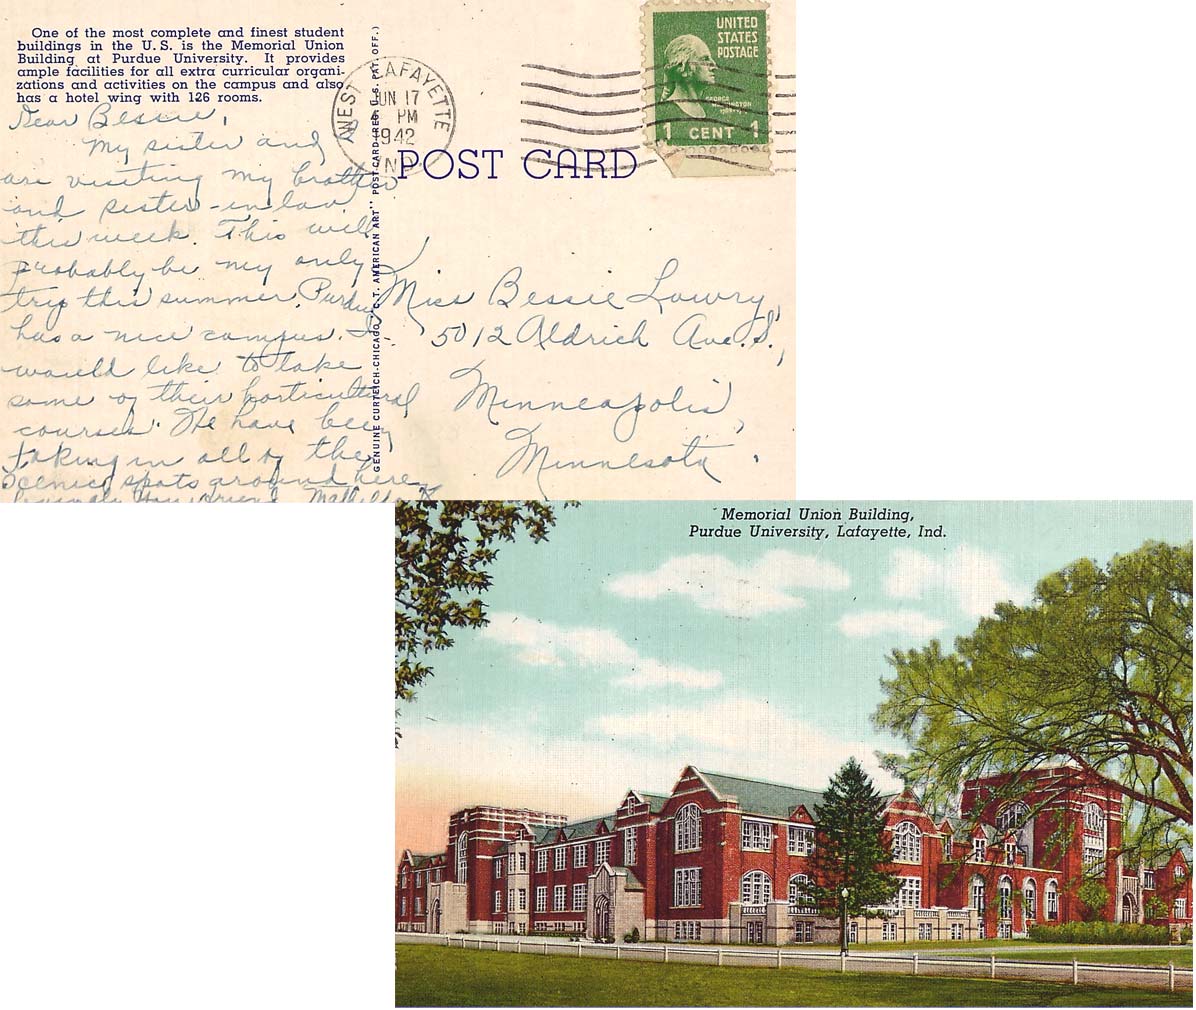 One of the most complete and finest student
buildings in the U. S. is the Memorial Union
Building at Purdue University. It provides
ample facilities for all extra curricular organi-
zations and activities on the campus and also
has a hotel wing with 126 rooms.
Dear Bessie,
My sister and I
are visiting my brother
and sister-in-law
this week. This will
probably be my only
trip this summer. Purdue
has a nice campus. I
would like to take
some of their horticultural
courses. We have been
taking in all of the
scenic spots around here.
Your friend,
GENUINE CURTEICH-CHICAGO "C. T. AMERICAN ART" POST CARD (REG. U. S. PAT. OFF.)
WEST LAFAYETTE
JUN 17
PM
1942
IND.
UNITED
STATES
POSTAGE
GEORGE
WASHINGTON
1 CENT 1
POST CARD
Miss Bessie Lowry,
5012 Aldrich Ave. S.,
Minneapolis,
Minnesota.
Memorial Union Building,
Purdue University, Lafayette, Ind.